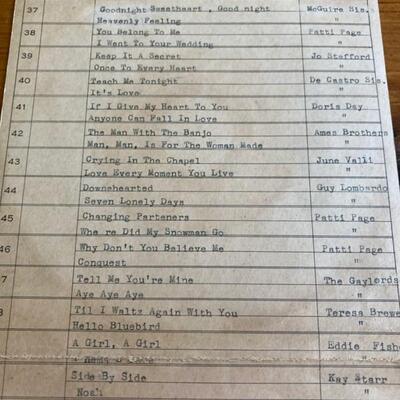 37 Goodnight Sweetheart , Good night McGuire Sis.
Heavenly Feeling "
38 You Belong To Me Patti Page
I Went To Your Wedding "
39 Keep It A Secret Jo Stafford
Once To Every Heart "
40 Teach Me Tonight De Castro Sis.
It's Love "
41 If I Give My Heart To You Doris Day
Anyone Can Fall In Love "
42 The Man With The Banjo Ames Brothers
Man, Man, Is For The Woman Made "
43 Crying In The Chapel June Valli
Love Every Moment You Live "
44 Downhearted Guy Lombardo
Seven Lonely Days "
45 Changing Parteners Patti Page
Whe re Did My Snowman Go "
46 Why Don't You Believe Me Patti Page
Conquest "
7 Tell Me You're Mine The Gaylords
Aye Aye Aye "
8 Til I Waltz Again With You Teresa Brewe
Hello Bluebird "
A Girl, A Girl Eddie Fish
Side By Side Kay Starr
Noah "